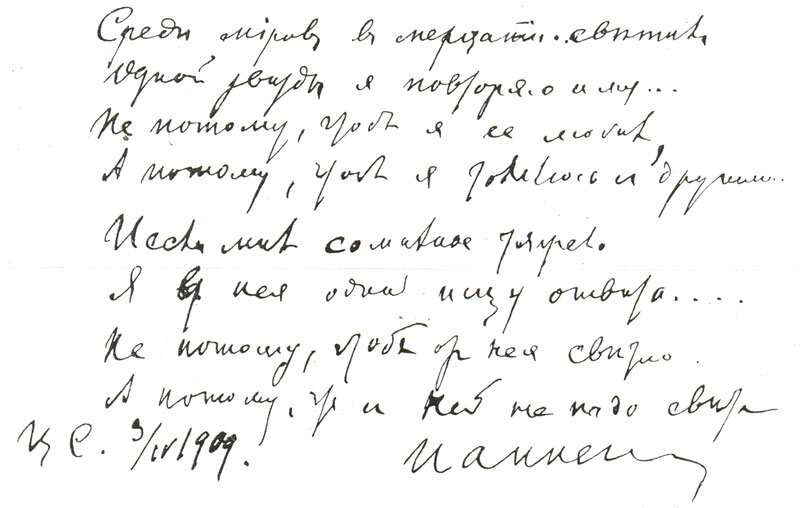 Среди міровъ въ мерцаніи свѣтилъ
Одной звѣзды я повторяю имя...
Не потому, чтобъ я ее любилъ,
А потому, что я томлюсь съ другими...
И если мнѣ сомнѣнье тяжело
Я у нея одной ищу отвѣта....
Не потому, чтобъ отъ нея свѣтло
А потому, что съ ней не надо свѣта
Ц С. 3/IV 1909.